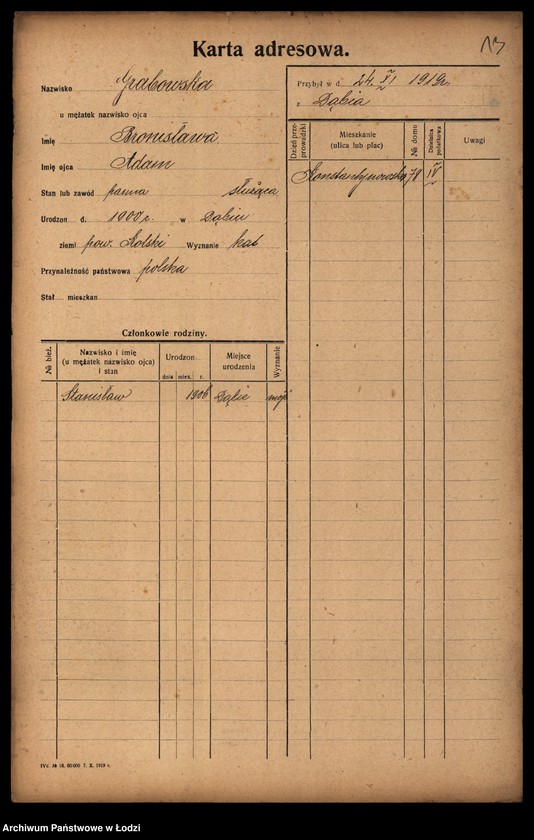 Karta adresowa.
13
Nazwisko Grabowska
u mężatek nazwisko ojca
Imię Bronisława
Imię ojca Adam
Stan lub zawód panna służąca
Urodzon d. 1900 r. w Dąbiu
ziemi pow. Kolski Wyznanie kat
Przynależność państwowa polska
Stał mieszkan
Przybył w d. 24. XI 1919 r.
z Dąbia
Dzień przeprowadzki
Mieszkanie
(ulica lub plac)
№ domu
Dzielnica podatkowa
Uwagi
Konstantynowska 78 IV
Członkowie rodziny.
№ bież.
Nazwisko i imię
(u mężatek nazwisko ojca)
i stan
Urodzon
dnia mies. r.
Miejsce
urodzenia
Wyznanie
Stanisław 1906 Dąbie
IVc. № 18. 60000 7. X. 1919 r.
Archiwum Państwowe w Łodzi